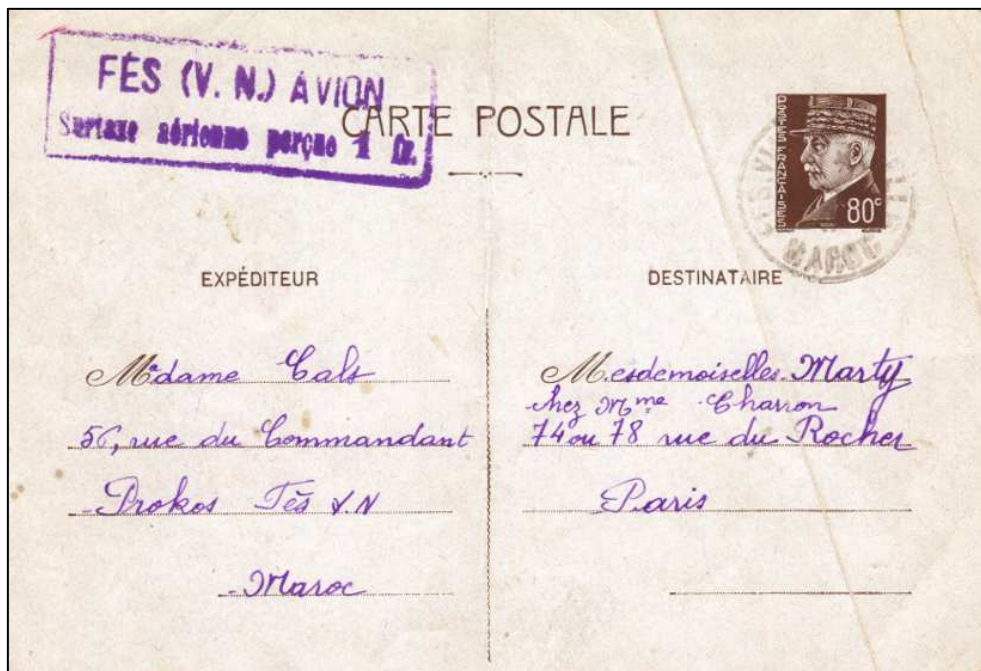 FÈS (V. N.) AVION
Surtaxe aérienne perçue 1 fr.
CARTE POSTALE
POSTES FRANÇAISES
80c
MAROC
EXPÉDITEUR
Madame Cals
56, rue du Commandant
Prokos Fès V.N
Maroc
DESTINATAIRE
Mesdemoiselles Marty
chez Mme Charron
74 ou 78 rue du Rocher
Paris